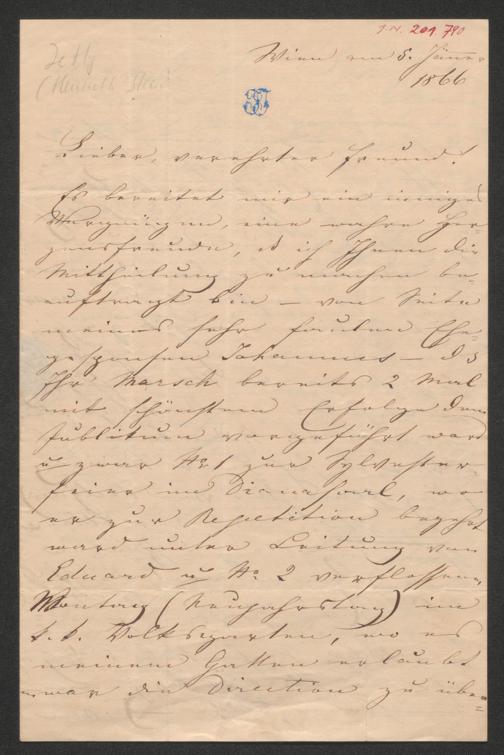 I.N. 201.790
Jetty
Wien, am 5. Jänner
1866
Lieber, verehrter Freund!
Es bereitet mir ein inniges
Vergnügen, eine wahre Her-
zensfreude, daß ich Ihnen die
Mittheilung zu machen be-
auftragt bin — von Seite
meines sehr faulen Ehe-
gesponsen Johannes — daß
Ihr Marsch bereits 2 Mal
mit schönstem Erfolge dem
Publikum vorgeführt ward
u zwar No 1 zur Sylvester-
feier im Dianasaal, wo
er zur Repetition begehrt
ward unter Leitung von
Eduard u No 2 verflossenen
Montag (Neujahrstag) im
k. k. Volksgarten, wo es
meinem Gatten erlaubt
war die Direction zu über=